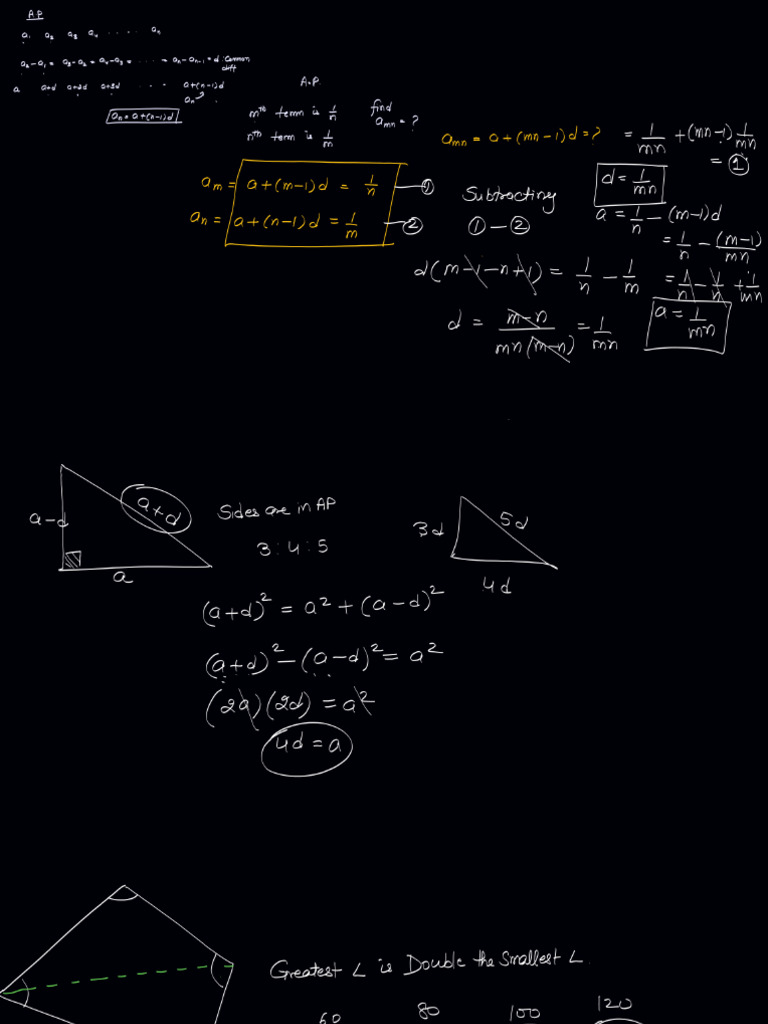 A.P
a₁ a₂ a₃ a₄ ..... aₙ
a₂-a₁ = a₃-a₂ = a₄-a₃ = ..... = aₙ-aₙ₋₁ = d : Common diff
a a+d a+2d a+3d .... a+(n-1)d
aₙ
aₙ = a+(n-1)d
A.P.
mᵗʰ term is 1/n find
nᵗʰ term is 1/m aₘₙ = ?
aₘ = a+(m-1)d = 1/n —①
aₙ = a+(n-1)d = 1/m —②
Subtracting
① — ②
d(m-1-n+1) = 1/n - 1/m
d = m-n / mn(m-n) = 1/mn
aₘₙ = a+(mn-1)d = ? = 1/mn + (mn-1) 1/mn
= ①
d = 1/mn
a = 1/n - (m-1)d
= 1/n - (m-1)/mn
= 1/n - 1/n + 1/mn
a = 1/mn
a-d
a+d
a
Sides are in AP
3 : 4 : 5
3d
5d
4d
(a+d)² = a² + (a-d)²
(a+d)² - (a-d)² = a²
(2a)(2d) = a²
4d = a
Greatest ∠ is Double the Smallest ∠.
60 80 100 120